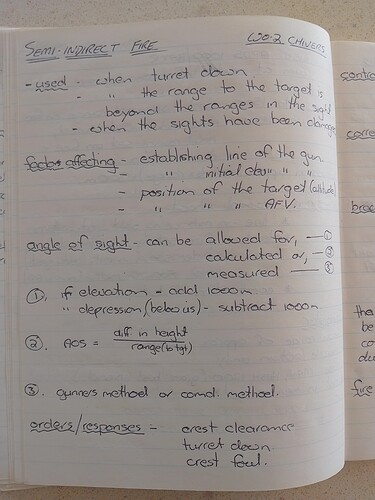 SEMI-INDIRECT FIRE WO-2 CHIVERS
- used - when turret down
- " the range to the target is
beyond the ranges in the sight
- when the sights have been damaged
factors affecting - establishing line of the gun
- " initial elev " "
- position of the target (altitude)
- " " " AFV.
angle of sight - can be allowed for, — ①
calculated or, — ②
measured — ③
①. if elevation - add 100m
" depression (below us) - subtract 100m
②. AOS = diff in height
range (to tgt)
③. gunners method or comd. method.
orders/responses - crest clearance
turret down
crest foul.
contro
corre
brac
tha
be
co
du
fire